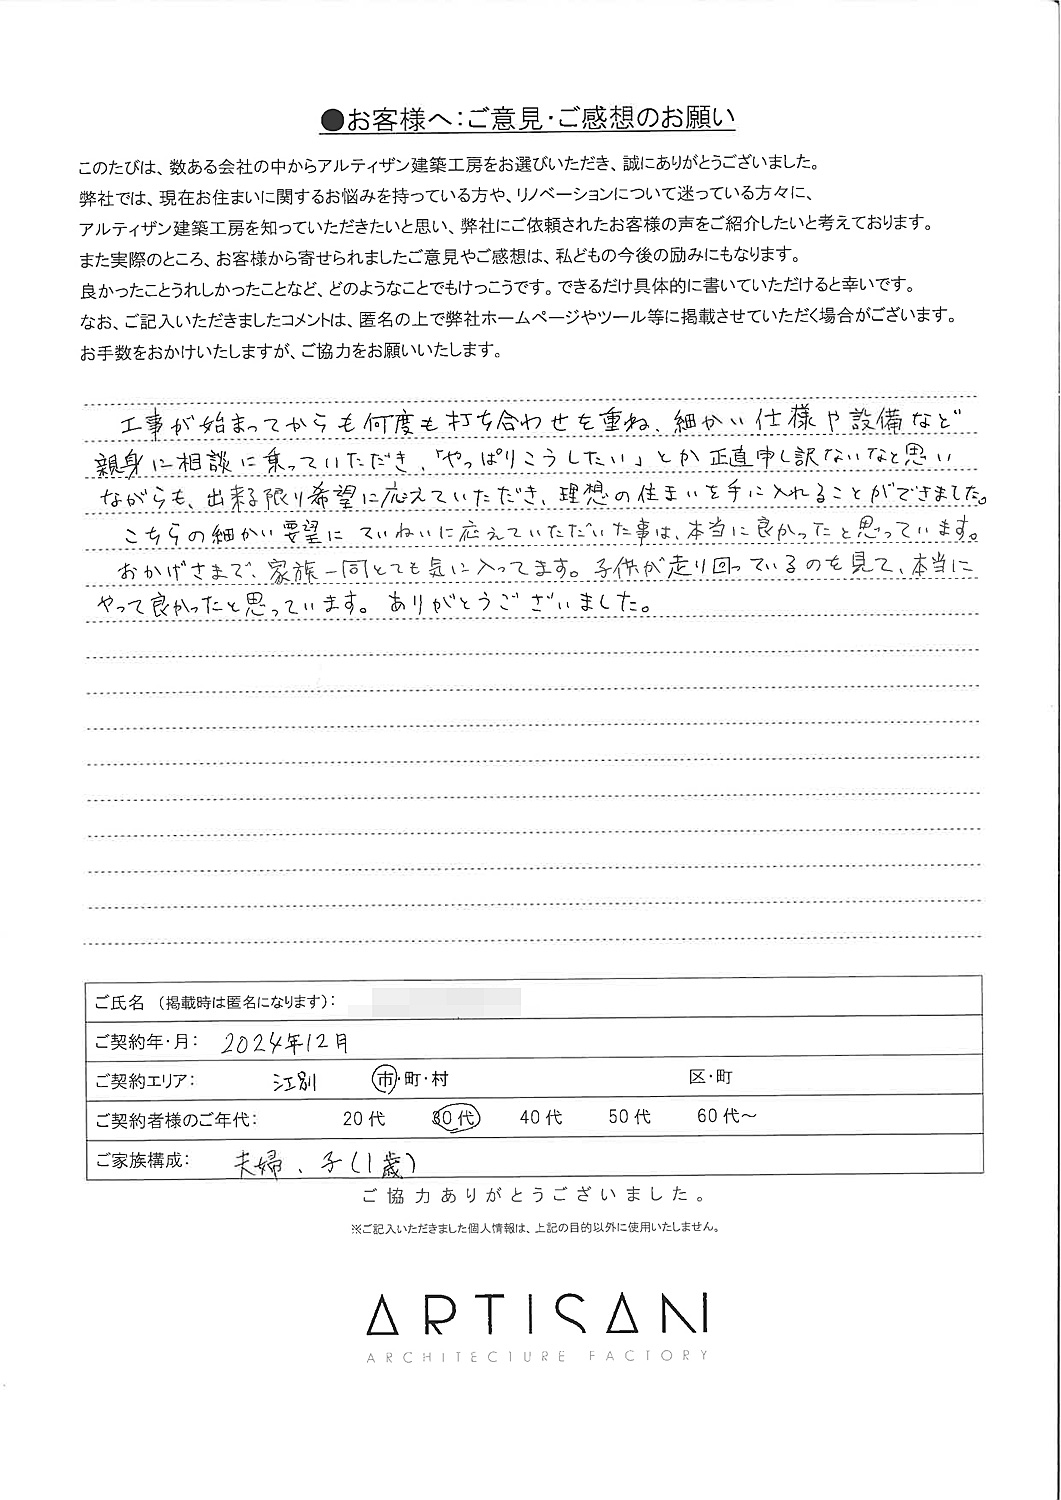 ●お客様へ：ご意見・ご感想のお願い
このたびは、数ある会社の中からアルティザン建築工房をお選びいただき、誠にありがとうございました。
弊社では、現在お住まいに関するお悩みを持っている方や、リノベーションについて迷っている方々に、
アルティザン建築工房を知っていただきたいと思い、弊社にご依頼されたお客様の声をご紹介したいと考えております。
また実際のところ、お客様から寄せられましたご意見やご感想は、私どもの今後の励みにもなります。
良かったことうれしかったことなど、どのようなことでもけっこうです。できるだけ具体的に書いていただけると幸いです。
なお、ご記入いただきましたコメントは、匿名の上で弊社ホームページやツール等に掲載させていただく場合がございます。
お手数をおかけいたしますが、ご協力をお願いいたします。
工事が始まってからも何度も打ち合わせを重ね、細かい仕様や設備など
親身に相談に乗っていただき、「やっぱりこうしたい」とか正直申し訳ないなと思い
ながらも、出来る限り希望に応えていただき、理想の住まいを手に入れることができました。
こちらの細かい要望にていねいに応えていただいた事は、本当に良かったと思っています。
おかげさまで、家族一同とても気に入ってます。子供が走り回っているのを見て、本当に
やって良かったと思っています。ありがとうございました。
ご氏名（掲載時は匿名になります）：
ご契約年・月： 2024年12月
ご契約エリア： 江別 市・町・村 区・町
ご契約者様のご年代： 20代 30代 40代 50代 60代～
ご家族構成： 夫婦、子（1歳）
ご協力ありがとうございました。
※ご記入いただきました個人情報は、上記の目的以外に使用いたしません。
ARTISAN
ARCHITECTURE FACTORY